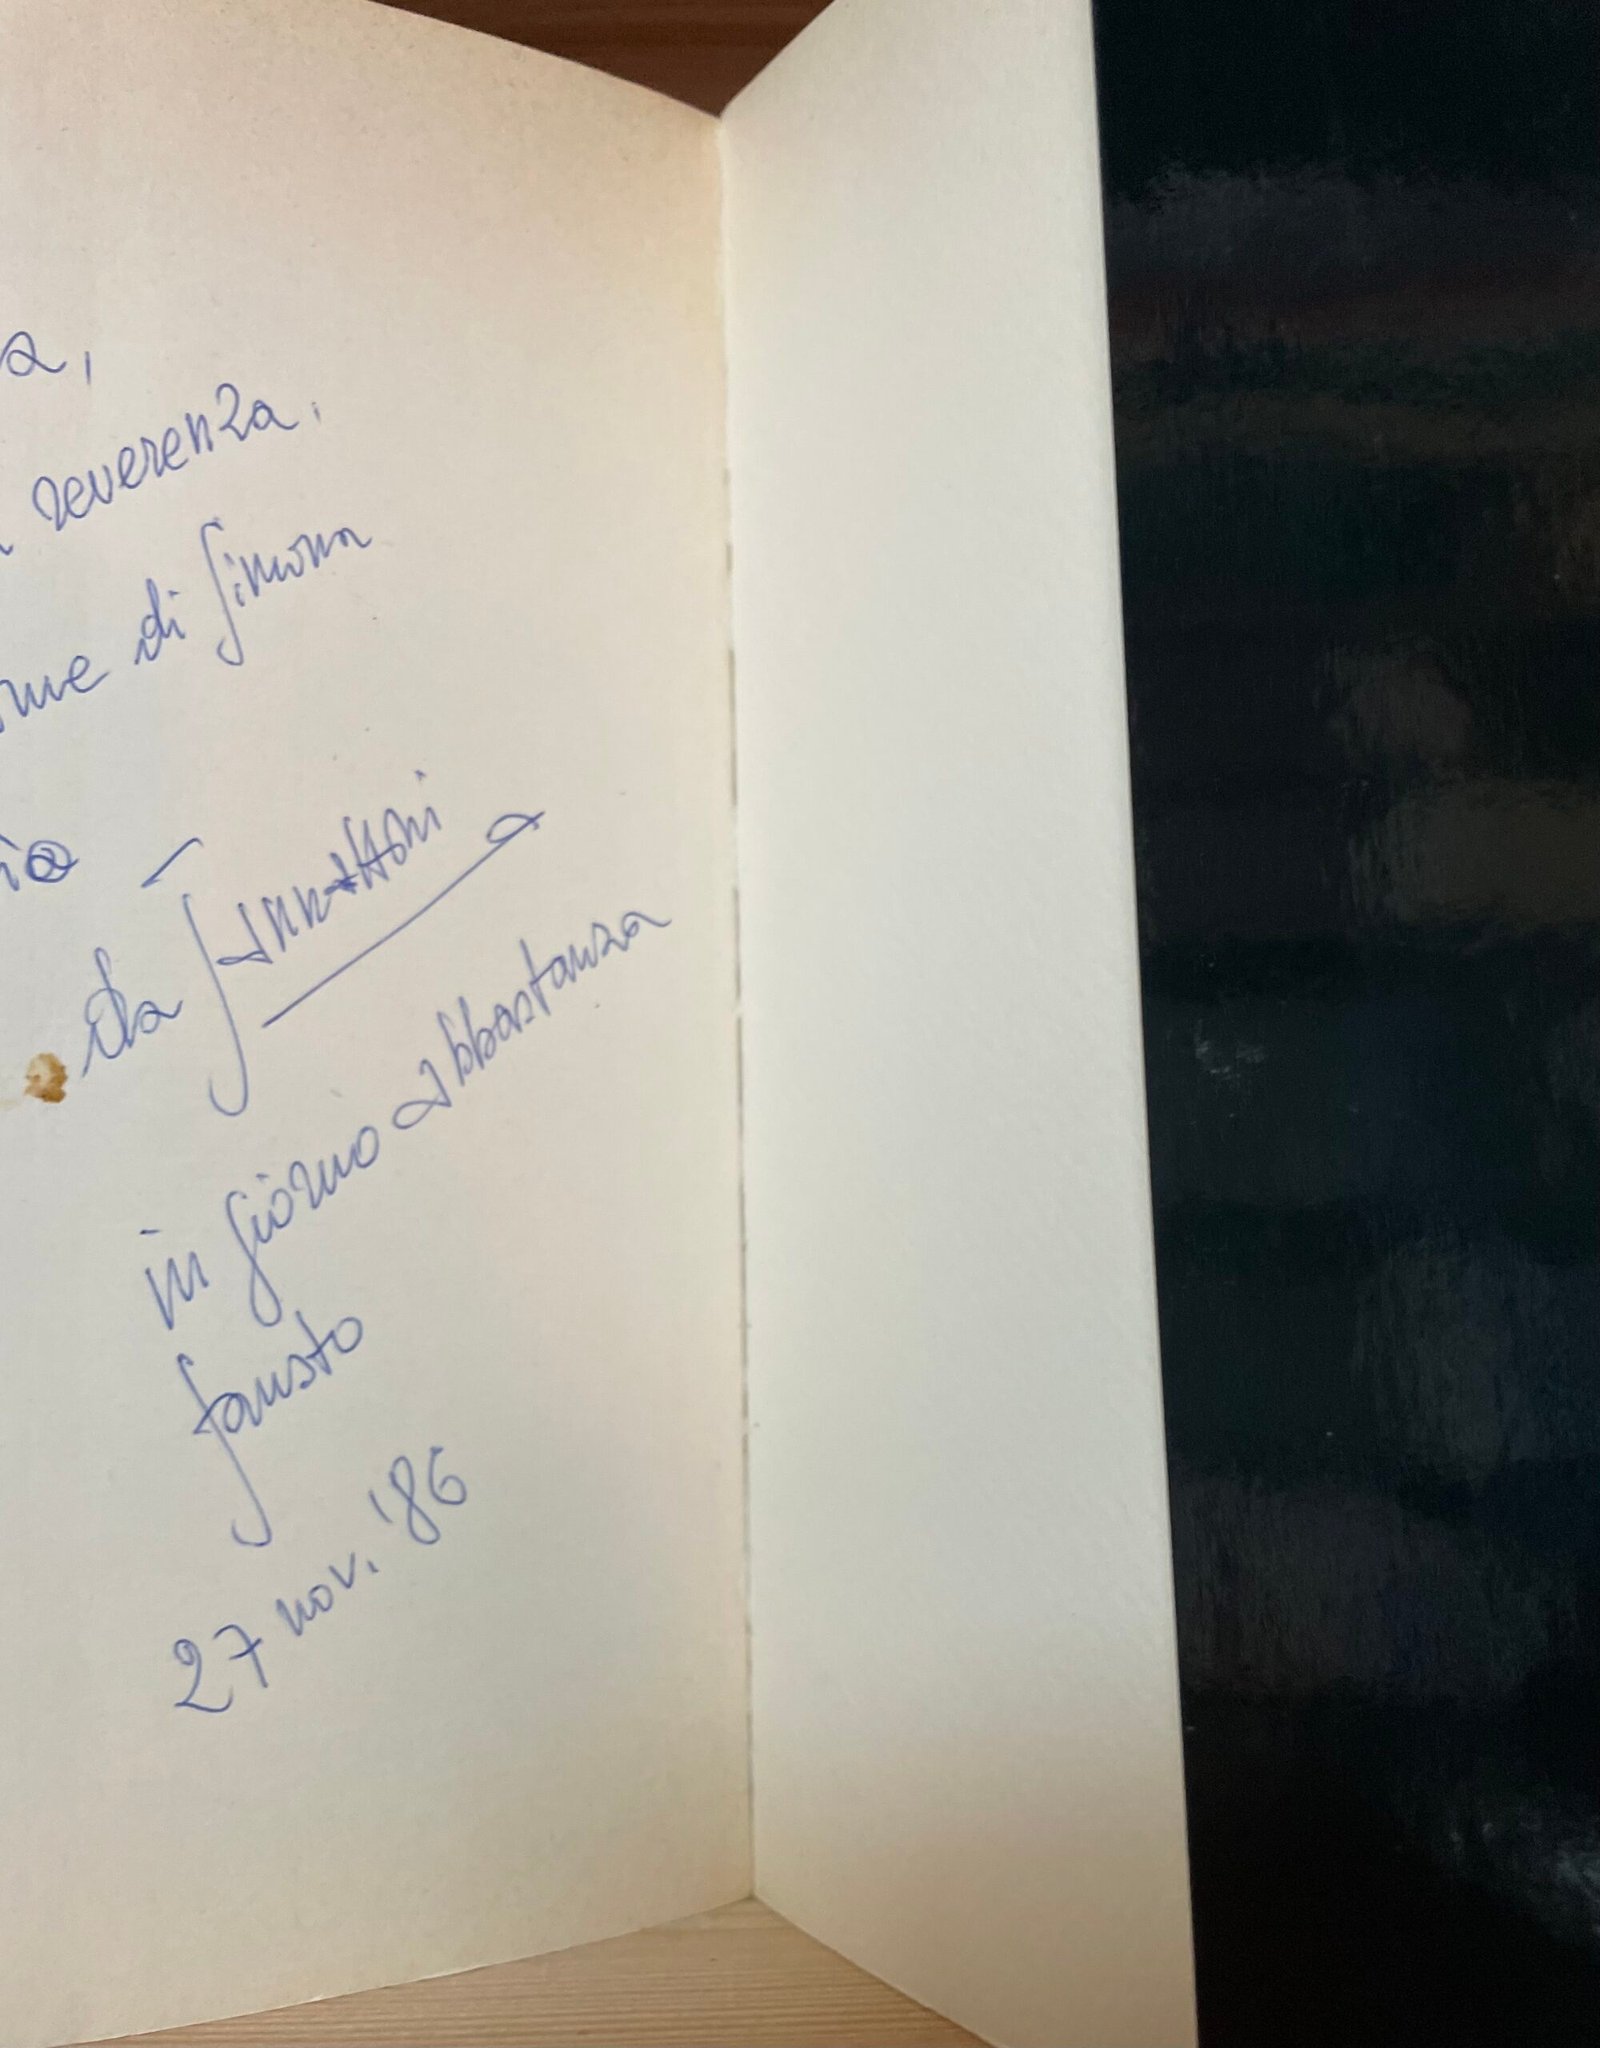 a,
reverenza.
me di Simona
da Jannattoni
in giorno abbastanza
fausto
27 nov. '86